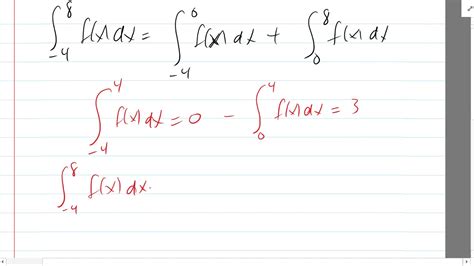 ∫_{-4}^{8} f(x) dx = ∫_{-4}^{0} f(x) dx + ∫_{0}^{8} f(x) dx
∫_{-4}^{4} f(x) dx = 0 - ∫_{0}^{4} f(x) dx = 3
∫_{-4}^{8} f(x) dx.